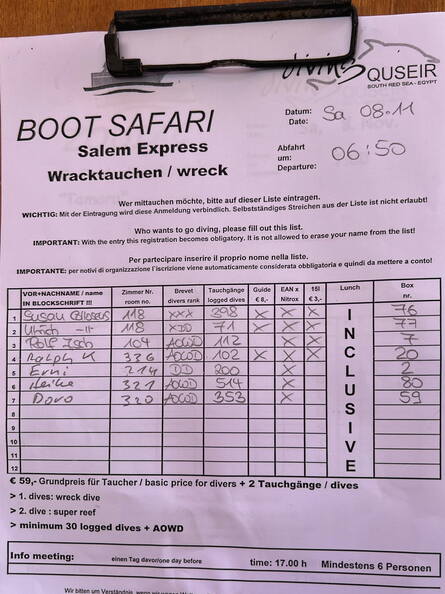 diving
QUSEIR
SOUTH RED SEA - EGYPT
BOOT SAFARI
Salem Express
Wracktauchen / wreck
Datum: Sa 08.11
Date:
Abfahrt
um: 06:50
Departure:
Wer mittauchen möchte, bitte auf dieser Liste eintragen.
WICHTIG: Mit der Eintragung wird diese Anmeldung verbindlich. Selbstständiges Streichen aus der Liste ist nicht erlaubt!
Who wants to go diving, please fill out this list.
IMPORTANT: With the entry this registration becomes obligatory. It is not allowed to erase your name from the list!
Per partecipare inserire il proprio nome nella liste.
IMPORTANTE: per notivi di organizzazione l'iscrizione viene automaticamente considerata obbligatoria e quindi da mettere a conto!
VOR+NACHNAME / name IN BLOCKSCHRIFT !!! Zimmer Nr. room no. Brevet divers rank Tauchgänge logged dives Guide € 8,- EAN x Nitrox 15l € 3,- Lunch Box nr.
1 Susan 118 XXX 398 X X X 76
2 Ulrich -"- 118 XDD 71 X X X 77
3 Rolf 104 AOWD 112 X X 7
4 Ralph K 336 AOWD 102 X X X 20
5 Erni 214 DD 200 X 2
6 Heike 321 AOWD 514 X 80
7 Doro 320 AOWD 353 X 59
8
9
10
11
12
INCLUSIVE
€ 59,- Grundpreis für Taucher / basic price for divers + 2 Tauchgänge / dives
> 1. dives: wreck dive
> 2. dive : super reef
> minimum 30 logged dives + AOWD
Info meeting: einen Tag davor/one day before time: 17.00 h Mindestens 6 Personen